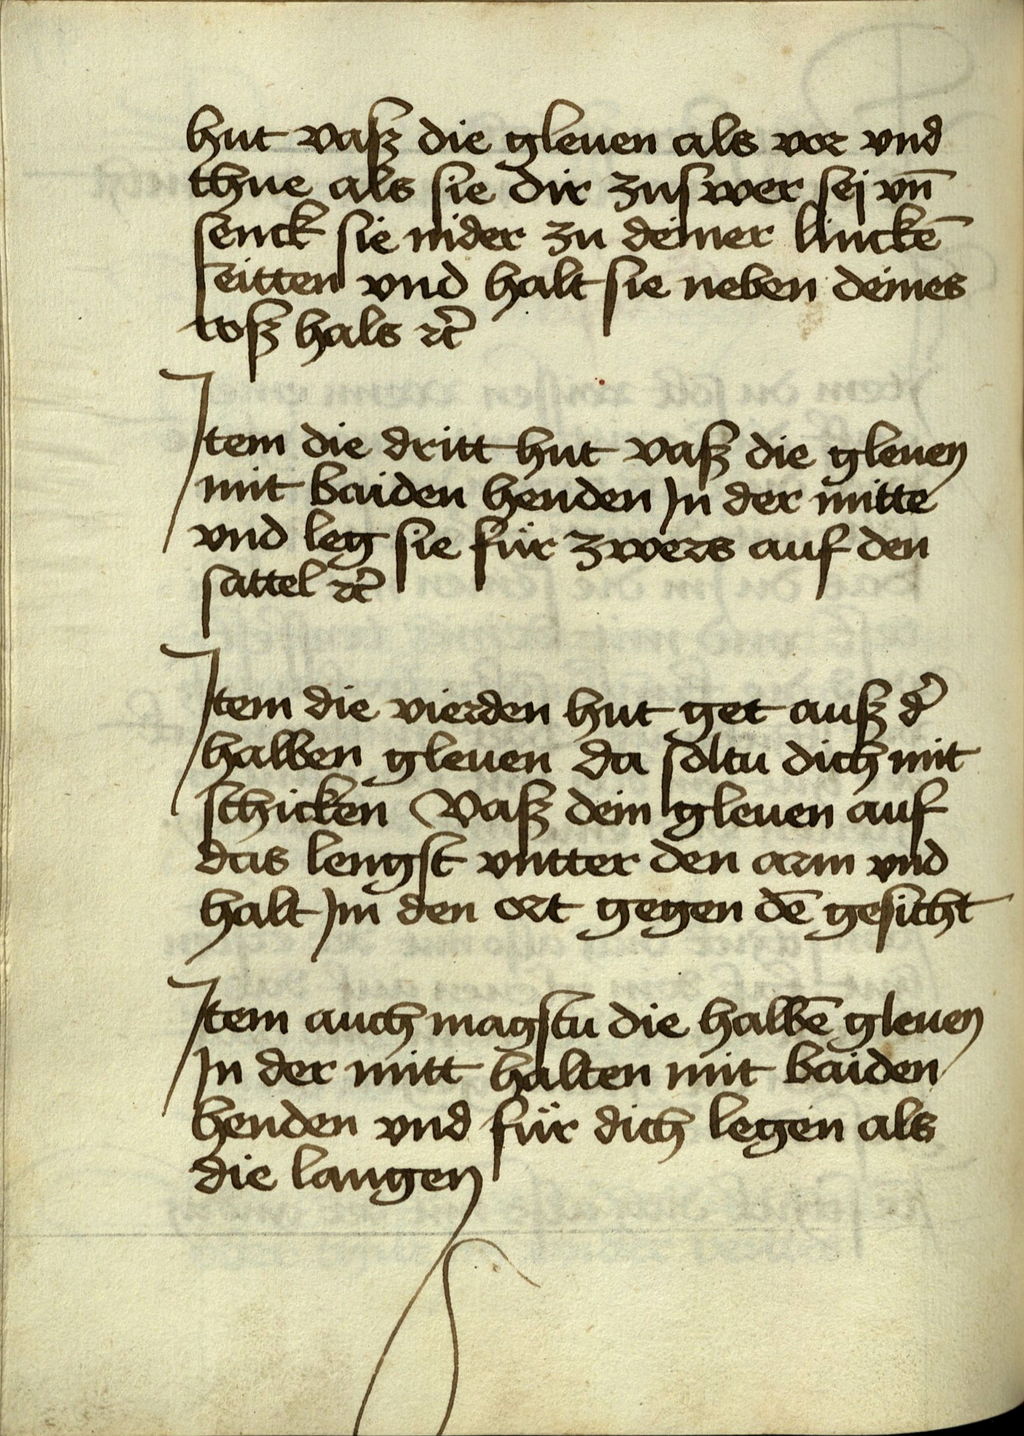 hut vaß die gleuen als vor vnd
thue als sie dir zuswer sej vn̄
senck sie nider zu deiner linckē
seitten vnd halt sie neben deines
roß hals ⁊c̄
Item die dritt hut vaß die gleuen
mit baiden henden In der mitte
vnd leg sie für zwers auf den
sattel ⁊c̄
Item die vierden hut get auß d̛
halben gleuen da soltu dich mit
schicken Vaß dein gleuen auf
das lengst vntter den arm vnd
halt Im den ort gegen dē gesicht
Item auch magstu die halbē gleuen
In der mitt halten mit baiden
henden vnd für dich legen als
die langen